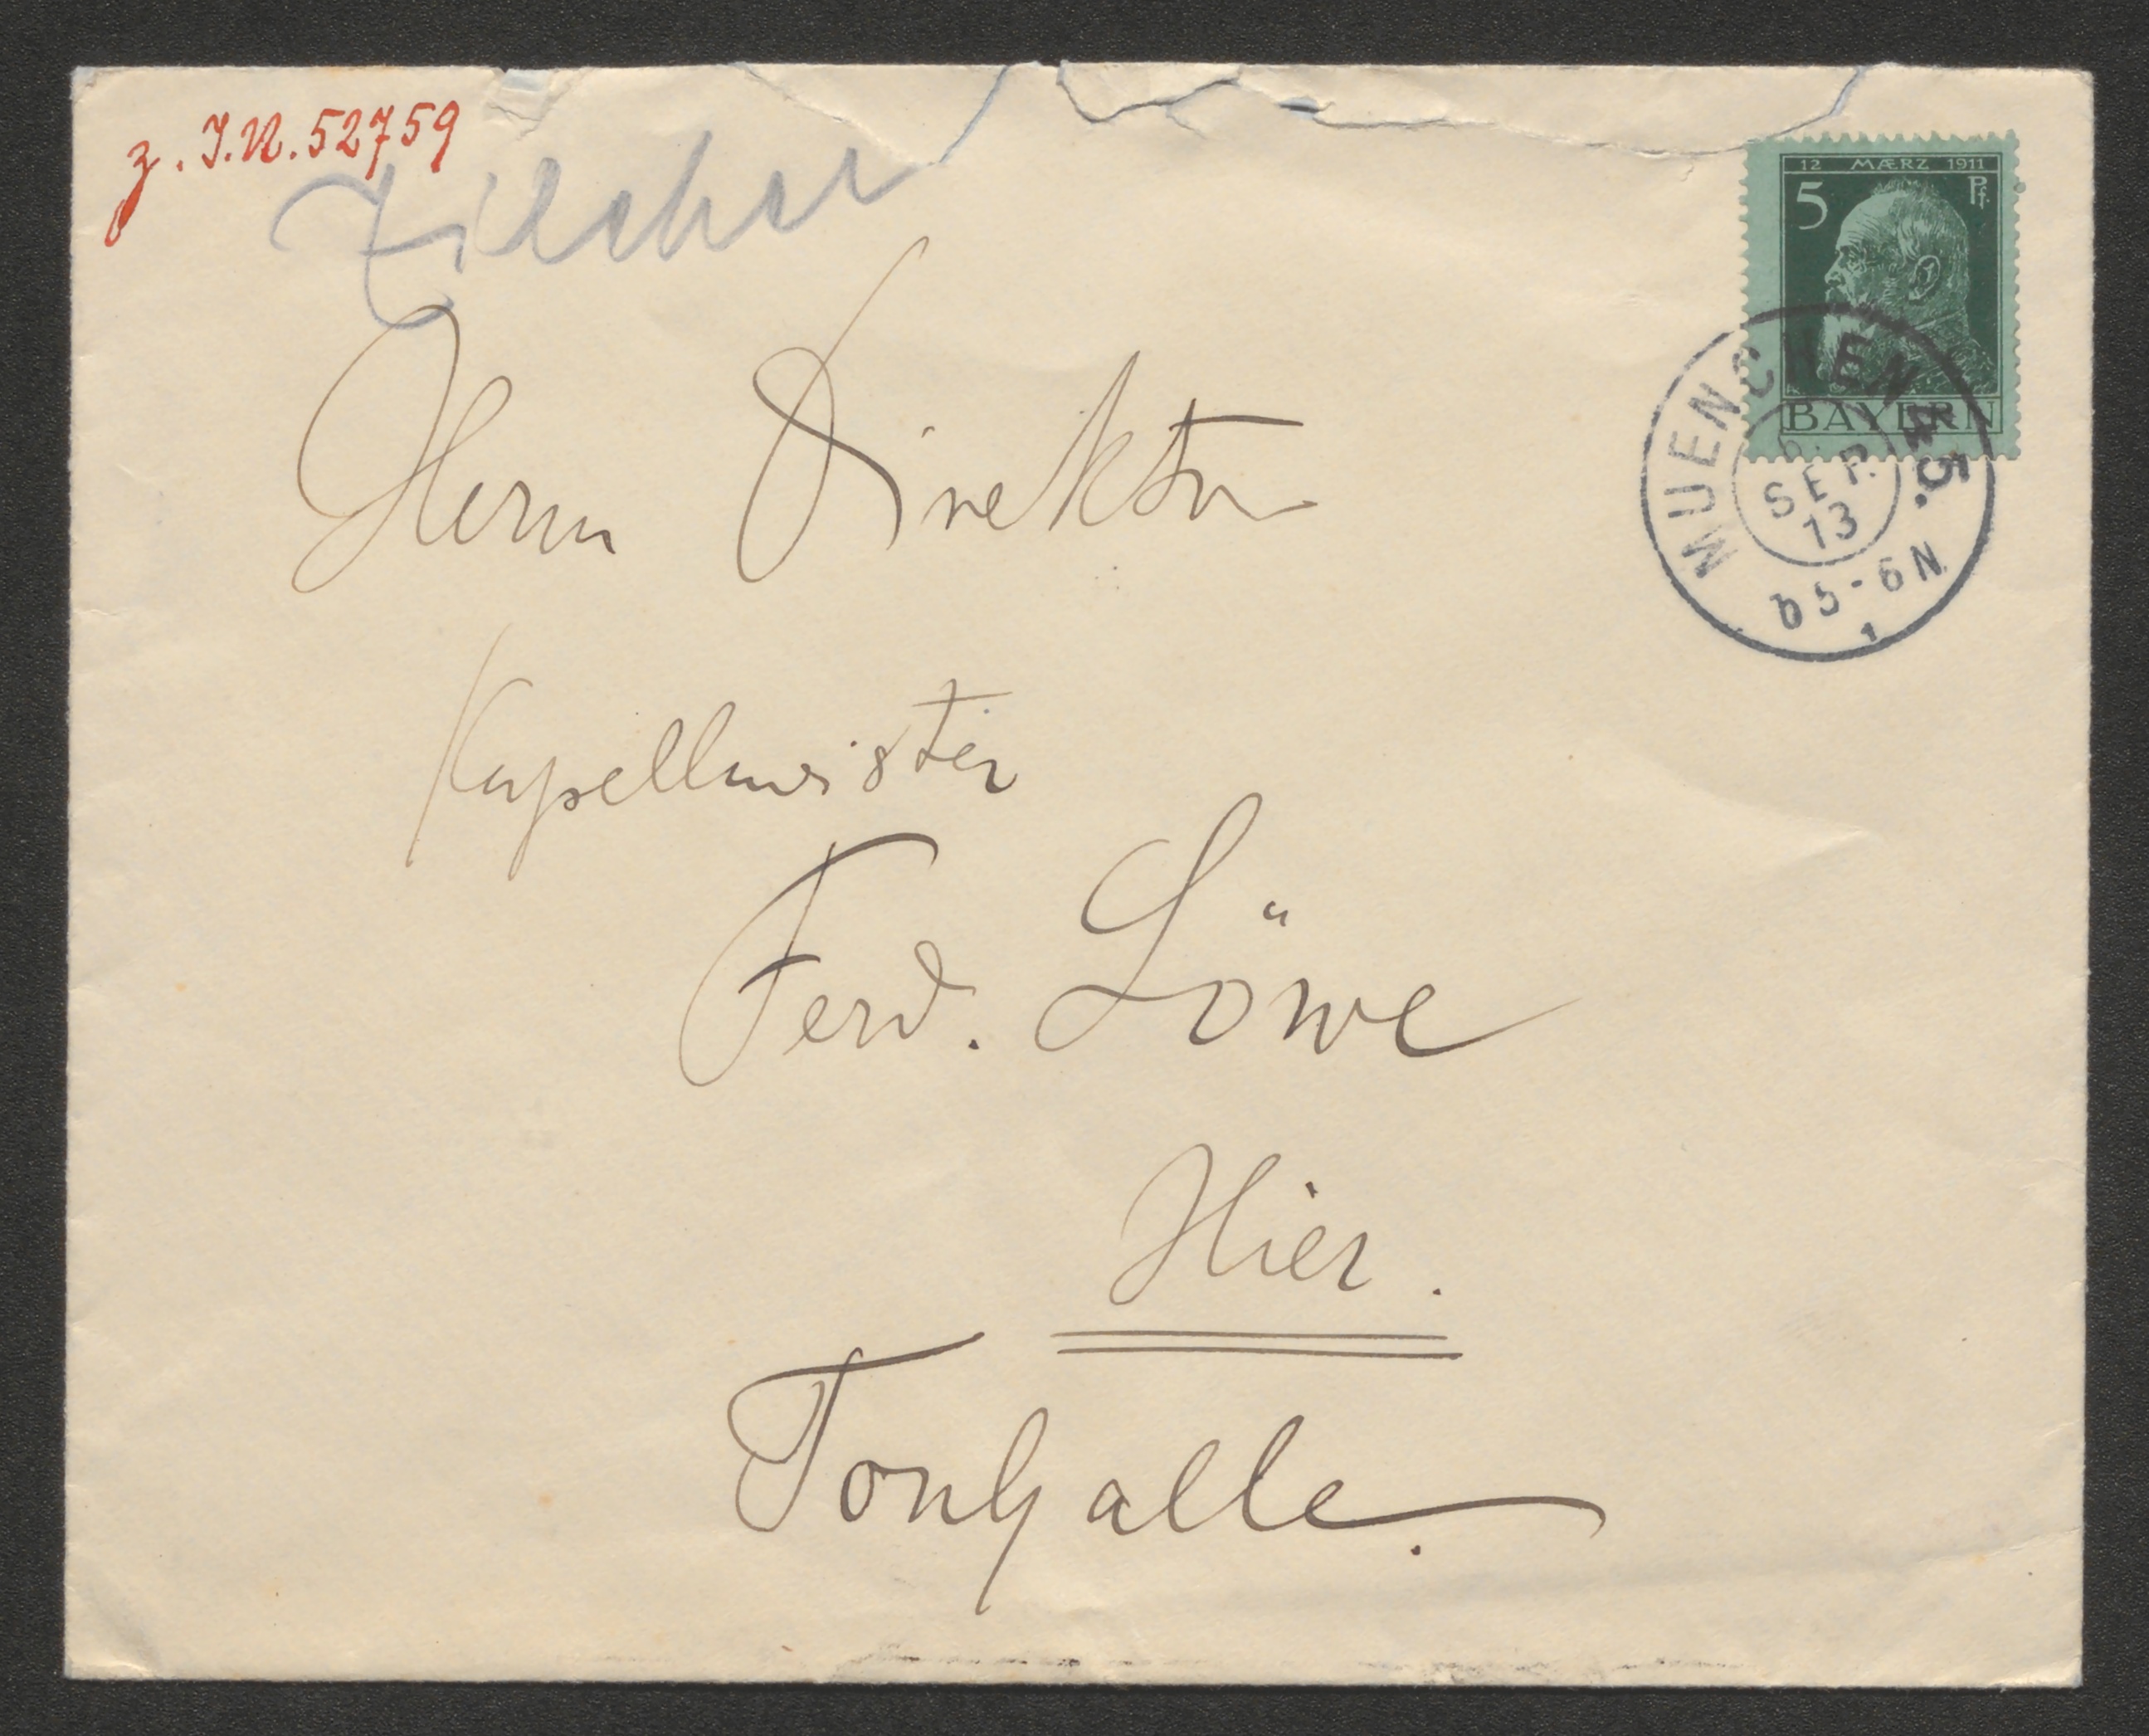 z. I.N. 52759
Zilcher
12 MÆRZ 1911
5 Pf.
BAYERN
MUENCHEN 45.
SEP.
13
5-6 N
Herrn Direktor
Kapellmeister
Ferd. Löwe
Hier.
Tonhalle.